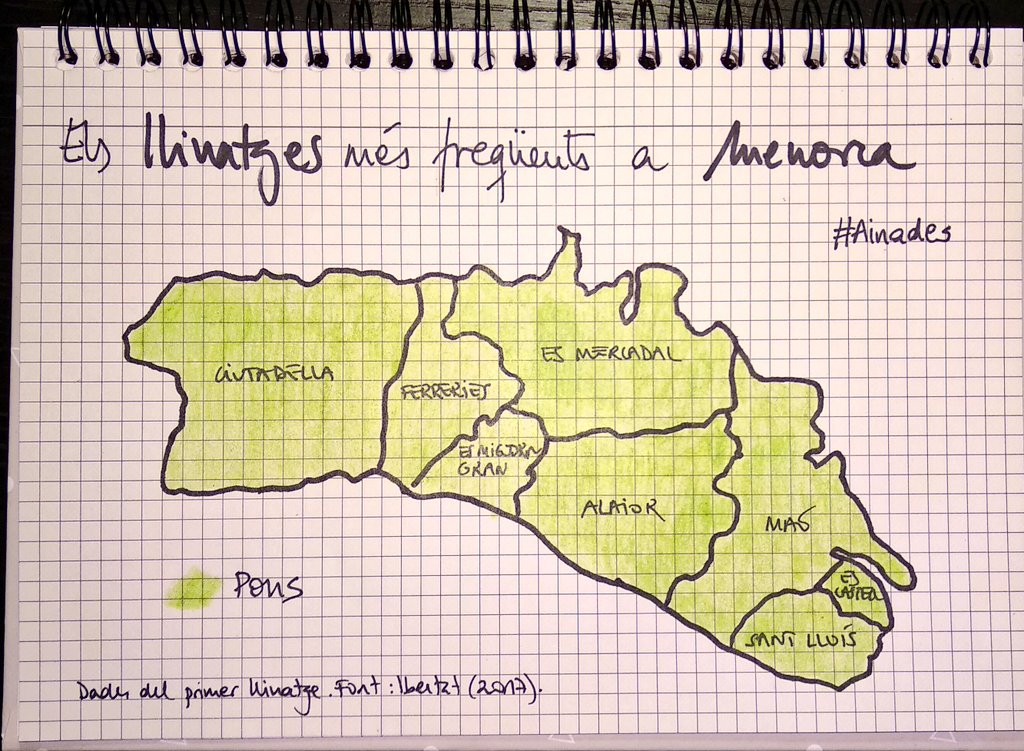 Els llinatges més freqüents a Menorca
#Ainades
CIUTADELLA
FERRERIES
ES MERCADAL
ES MIGJORN
GRAN
ALAIOR
MAÓ
ES
CASTELL
SANT LLUÍS
Pons
Dades del primer llinatge. Font: Ibestat (2017).